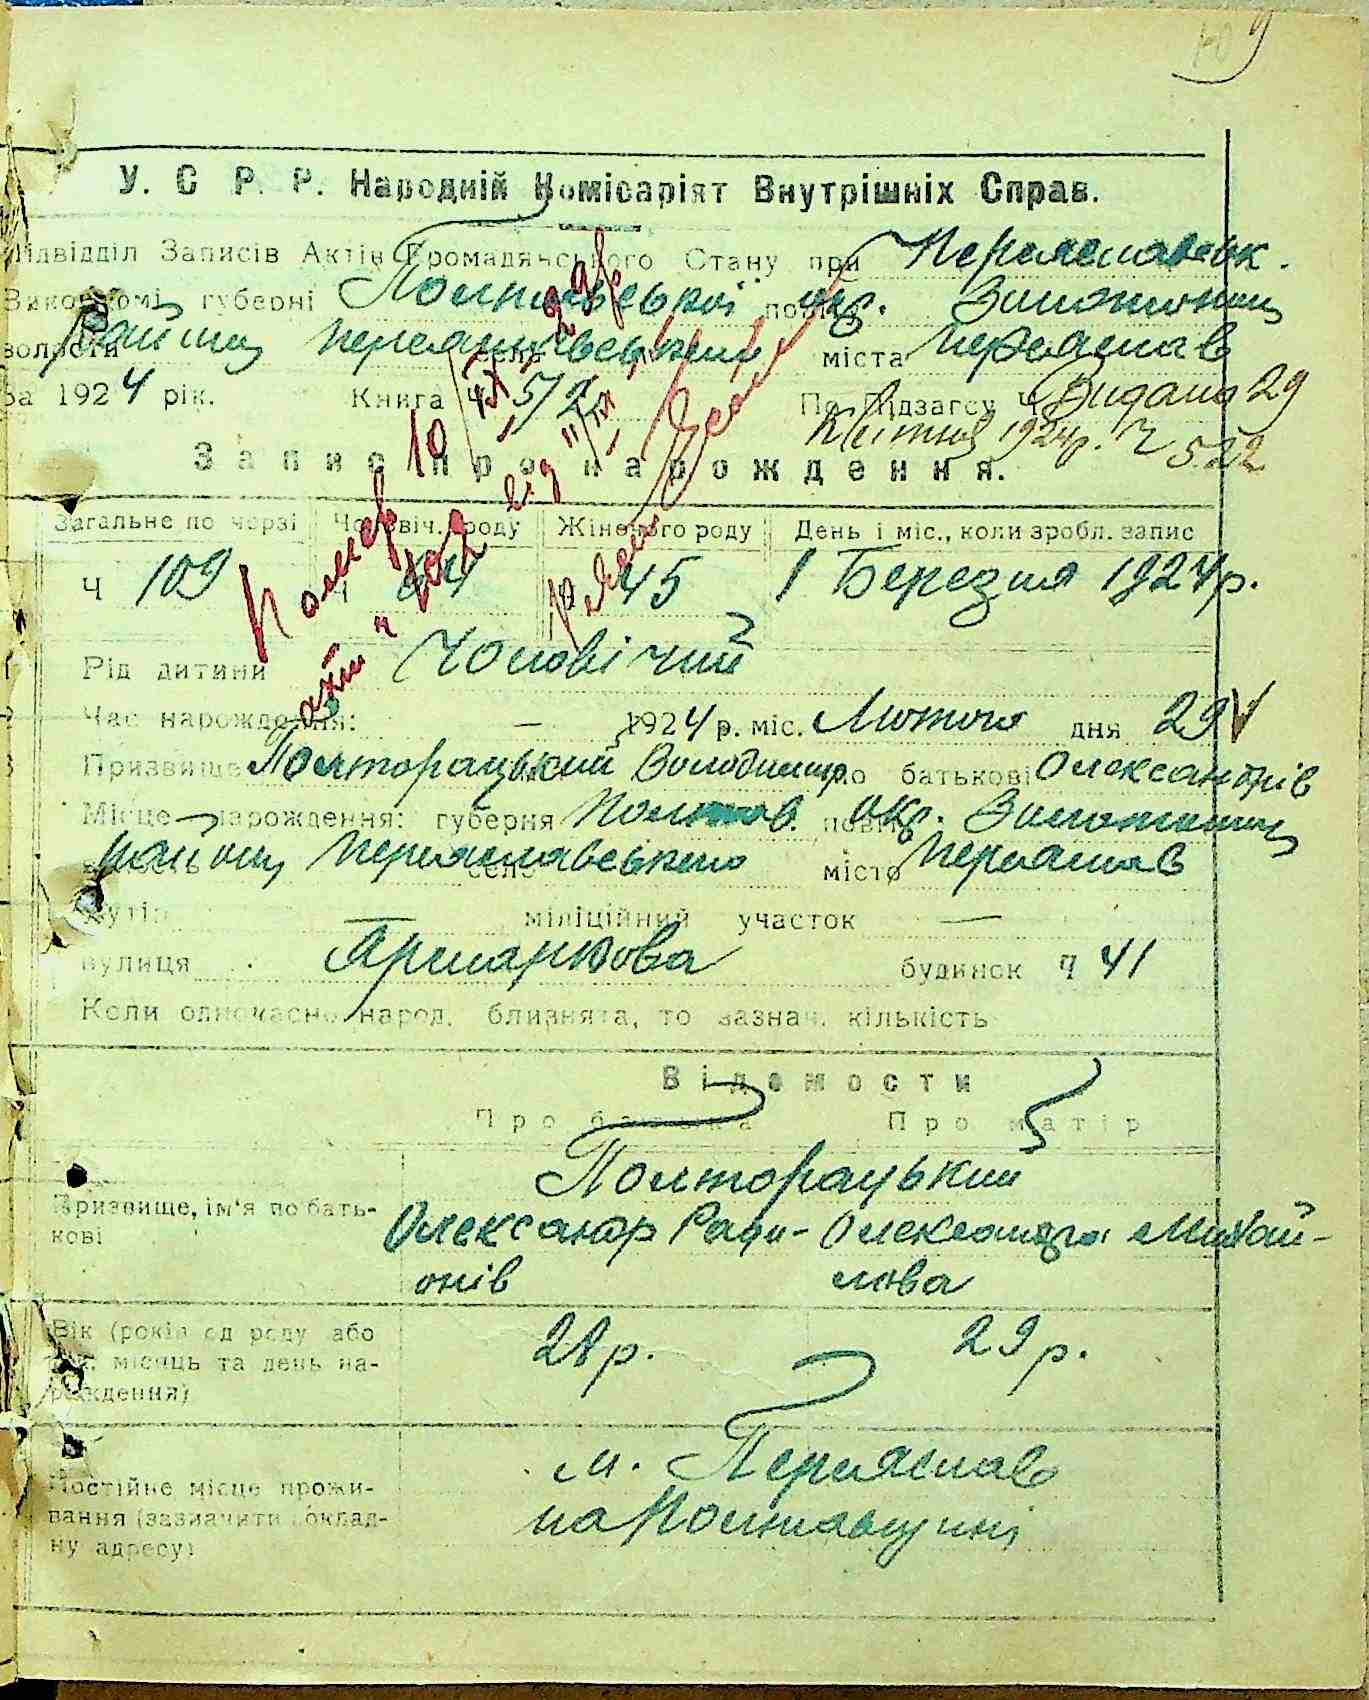 У. С. Р. Р. Народній Комісаріят Внутрішніх Справ.
Підвідділ Записів Актів Громадянського Стану при Переяславськ.
Виконкомі губерні Полтавської повіт окр. Золотонош
волости Району Переяславського село міста Переяслав
За 1924 рік. Книга Ч 5/2 По Підзагсу Ч Видано 29
Квітня 1924р. Ч 522
Запис про народження.
Загальне по черзі Чоловіч. роду Жіночого роду День і міс., коли зробл. запис
Ч 109 Ч 64 Ч 45 1 Березня 1924р.
Рід дитини Чоловічий
Час народження: — 1924 р. міс. Лютого дня 29
Призвище Полторацький Володимир по батькові Олександрів
Місце народження: губерня Полтав. повіт окр. Золотонош
волость Району Переяславського село місто Переяслав
хутір — міліційний участок —
вулиця Ярмаркова будинок Ч 41
Коли одночасно народ. близнята, то зазнач. кількість
Відомости
Про батька Про матір
Призвище, ім'я по бать-
кові
Полторацький
Олександр Роди- Олександра Михай-
онів лова
Вік (років од роду або
рік, місяць та день на-
рождення)
28 р. 29 р.
Постійне місце прожи-
вання (зазначити доклад-
ну адресу)
м. Переяслав
на Полтавщині